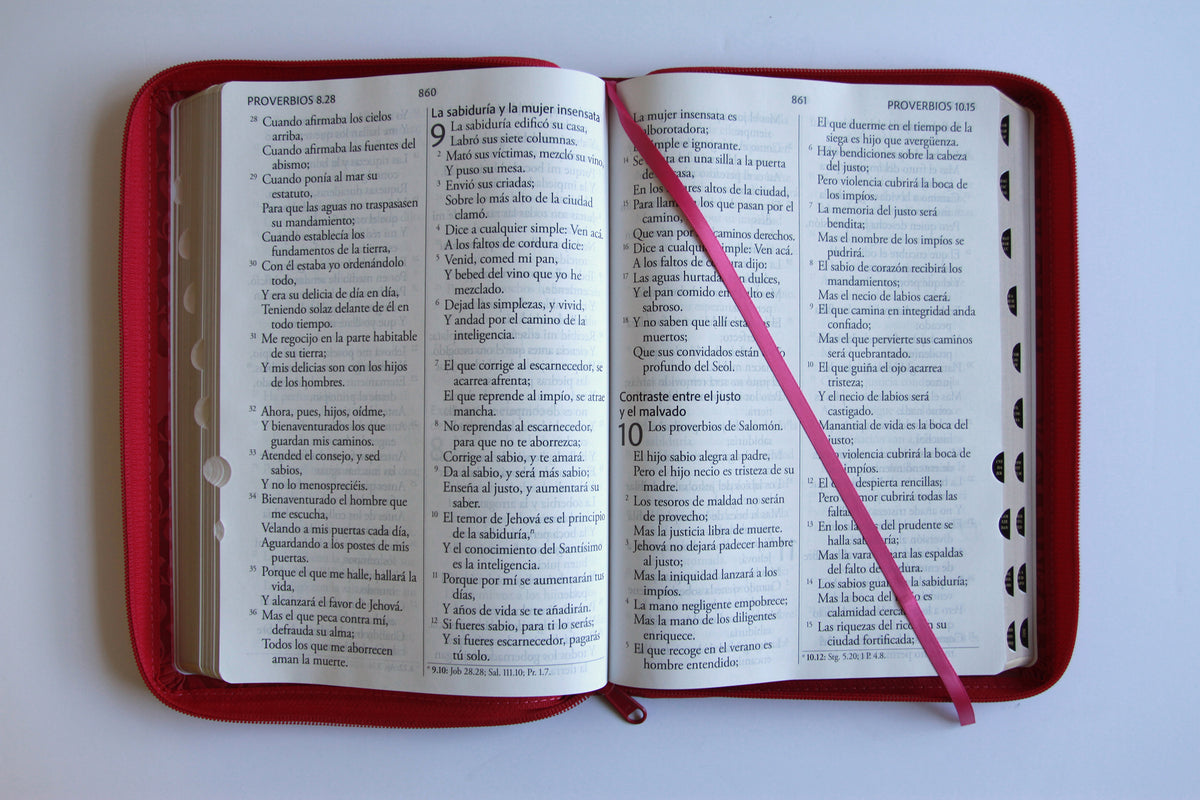 PROVERBIOS 8.28
860
28 Cuando afirmaba los cielos
arriba,
Cuando afirmaba las fuentes del
abismo;
29 Cuando ponía al mar su
estatuto,
Para que las aguas no traspasasen
su mandamiento;
Cuando establecía los
fundamentos de la tierra,
30 Con él estaba yo ordenándolo
todo,
Y era su delicia de día en día,
Teniendo solaz delante de él en
todo tiempo.
31 Me regocijo en la parte habitable
de su tierra;
Y mis delicias son con los hijos
de los hombres.
32 Ahora, pues, hijos, oídme,
Y bienaventurados los que
guardan mis caminos.
33 Atended el consejo, y sed
sabios,
Y no lo menospreciéis.
34 Bienaventurado el hombre que
me escucha,
Velando a mis puertas cada día,
Aguardando a los postes de mis
puertas.
35 Porque el que me halle, hallará la
vida,
Y alcanzará el favor de Jehová.
36 Mas el que peca contra mí,
defrauda su alma;
Todos los que me aborrecen
aman la muerte.
La sabiduría y la mujer insensata
9 La sabiduría edificó su casa,
Labró sus siete columnas.
2 Mató sus víctimas, mezcló su vino,
Y puso su mesa.
3 Envió sus criadas;
Sobre lo más alto de la ciudad
clamó.
4 Dice a cualquier simple: Ven acá.
A los faltos de cordura dice:
5 Venid, comed mi pan,
Y bebed del vino que yo he
mezclado.
6 Dejad las simplezas, y vivid,
Y andad por el camino de la
inteligencia.
7 El que corrige al escarnecedor, se
acarrea afrenta;
El que reprende al impío, se atrae
mancha.
8 No reprendas al escarnecedor,
para que no te aborrezca;
Corrige al sabio, y te amará.
9 Da al sabio, y será más sabio;
Enseña al justo, y aumentará su
saber.
10 El temor de Jehová es el principio
de la sabiduría,a
Y el conocimiento del Santísimo
es la inteligencia.
11 Porque por mí se aumentarán tus
días,
Y años de vida se te añadirán.
12 Si fueres sabio, para ti lo serás;
Y si fueres escarnecedor, pagarás
tú solo.
a 9.10: Job 28.28; Sal. 111.10; Pr. 1.7.
861
PROVERBIOS 10.15
La mujer insensata es
alborotadora;
ignorante.
14 en una silla a la puerta
casa,
En los altos de la ciudad,
15 Para los que pasan por el
camino,
Que van por caminos derechos.
16 Dice a cualquier simple: Ven acá.
A los faltos de cordura dijo:
17 Las aguas hurtadas dulces,
Y el pan comido en es
sabroso.
18 Y no saben que allí están
muertos;
Que sus convidados están en lo
profundo del Seol.
Contraste entre el justo
y el malvado
10 Los proverbios de Salomón.
El hijo sabio alegra al padre,
Pero el hijo necio es tristeza de su
madre.
2 Los tesoros de maldad no serán
de provecho;
Mas la justicia libra de muerte.
3 Jehová no dejará padecer hambre
al justo;
Mas la iniquidad lanzará a los
impíos.
4 La mano negligente empobrece;
Mas la mano de los diligentes
enriquece.
5 El que recoge en el verano es
hombre entendido;
El que duerme en el tiempo de la
siega es hijo que avergüenza.
6 Hay bendiciones sobre la cabeza
del justo;
Pero violencia cubrirá la boca de
los impíos.
7 La memoria del justo será
bendita;
Mas el nombre de los impíos se
pudrirá.
8 El sabio de corazón recibirá los
mandamientos;
Mas el necio de labios caerá.
9 El que camina en integridad anda
confiado;
Mas el que pervierte sus caminos
será quebrantado.
10 El que guiña el ojo acarrea
tristeza;
Y el necio de labios será
castigado.
Manantial de vida es la boca del
justo;
violencia cubrirá la boca de
impíos.
12 El despierta rencillas;
Pero amor cubrirá todas las
faltas.
13 En los del prudente se
halla sabiduría;
Mas la vara para las espaldas
del falto de cordura.
14 Los sabios guardan la sabiduría;
Mas la boca del es
calamidad
15 Las riquezas del rico su
ciudad fortificada;
a 10.12: Stg. 5.20; 1 P. 4.8.